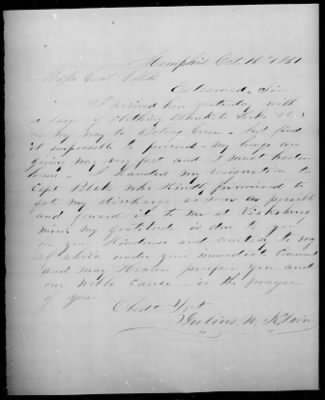 Memphis Oct 16th 1861
Maj Genl Polk
Esteemed Sir
I arrived here yesterday with
a cargo of Clothing Blankets Socks &c
on my way to Bowling Green - but find
it impossible to proceed - my lungs are
giving way very fast and I must hasten
home - I handed my resignation to
Capt Blake who kindly promised to
get my discharge as soon as possible
and forward it to me at Vicksburg
Miss my gratitude is due to you
for your Kindness and courtesy to me
while under your immediate Command
and may Heaven prosper you and
our noble cause - is the prayer
of your
Obedt Servt
Julius W. Klein